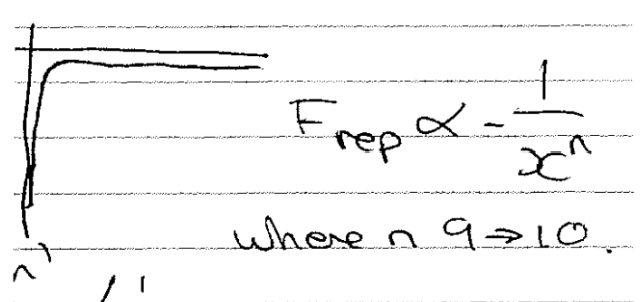 F_rep ∝ - 1/x^n
where n 9 → 10.